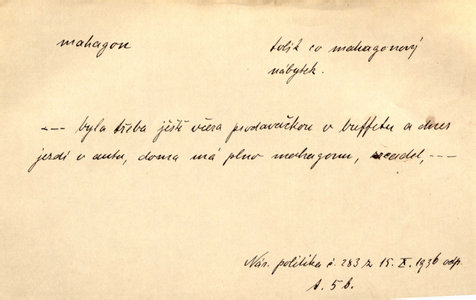 mahagon
tolik co mahagonový
nábytek.
--- byla třeba ještě včera prodavačkou v buffetu a dnes
jezdí v autu, doma má plno mahagonu, zrcadel, ---
Nár. politika č. 283 z 15. X. 1936 odp.
s. 5 b.